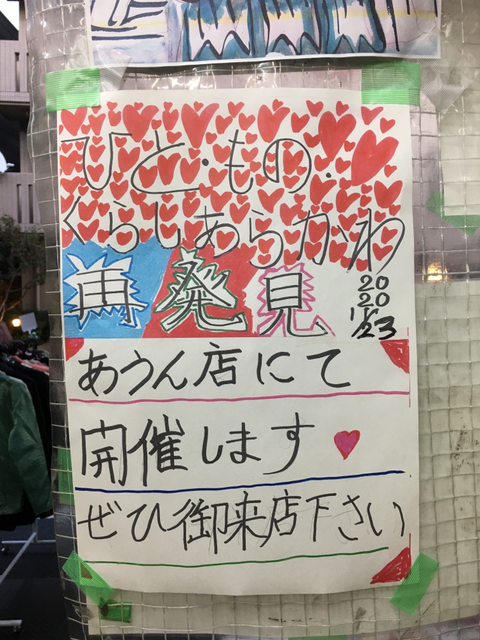 ひと・もの・
くらしあらかわ
再発見
20
20
11/23
あうん店にて
開催します
ぜひ御来店下さい